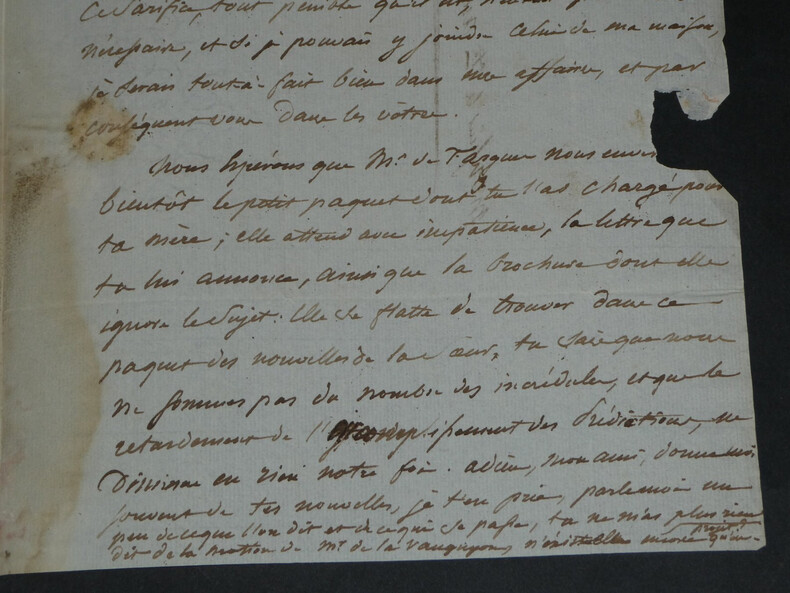 ce sacrifice, tout pénible qu'il est,
nécessaire, et si je pouvais y joindre celui de ma maison,
je serais tout-à-fait bien dans mes affaires, et par
conséquent vous dans les vôtres.
Nous espérons que Mr. de Fargue nous enver
bientôt le petit paquet dont tu l'as chargé pour
ta mère; elle attend avec impatience, la lettre que
tu lui annonce, ainsi que la brochure dont elle
ignore le sujet: Elle se flatte de trouver dans ce
paquet des nouvelles de la Sœur, tu sais que nous
ne sommes pas du nombre des incrédules, et que le
retardement de l'accomplissement des Prédictions, ne
Diminue en rien notre foi. adieu, mon ami, donne moi
souvent de tes nouvelles, je t'en prie, parle moi un
peu de ce que l'on dit et de ce qui se passe, tu ne m'as plus rien
dit de la motion de Mr. de la Vauguyon, n'était-elle encore qu'en